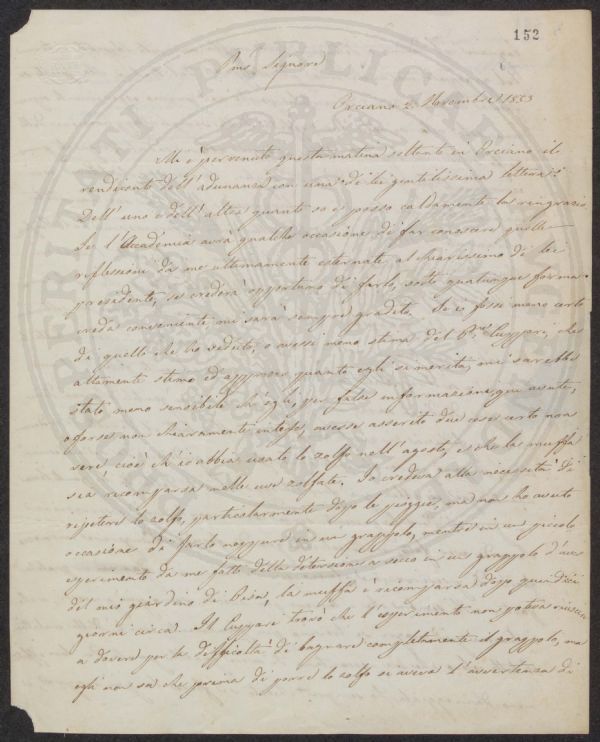 152
Pmo Signore
Orciano 2. Novembre 1853
Mi è pervenuto questa matina soltanto in Orciano il
rendiconto dell'adunanza con una di lei gentilissima lettera:
Dell'uno e dell'altra quanto so e posso caldamente la ringrazio
Se l'Accademia avrà qualche occasione di far conoscere quelle
riflessioni da me ultimamente esternate al chiarissimo di lei
presidente, se crederà opportuno di farlo, sotto qualunque forma
creda conveniente mi sarà sempre gradito. Se io fossi meno certo
di quello che ho veduto, o avessi meno stima del Cuppari, che
altamente stimo ed apprezzo quanto egli si merita, mi sarebbe
stato meno sensibile ch'egli, per false informazioni qui avute,
o forse non chiaramente intese, avesse asserito due cose certo non
vere, cioè ch'io abbia usato lo zolfo nell'agosto, e che la muffa
sia ricomparsa nelle uve zolfate. Io credeva alla necessità di
ripetere lo zolfo, particolarmente dopo le piogge, ma non ho avuto
occasione di farlo neppure in un grappolo, mentre in un piccolo
esperimento da me fatto della a secco in un grappolo d'uva
del mio giardino di Pisa, la muffa è ricomparsa dopo quindici
giorni circa. Il Cuppari trovò che l'esperimento non poteva riuscire
a dovere per la difficoltà di bagnare completamente il grappolo, ma
egli non sa che prima di porre lo zolfo si aveva l'avvertenza di